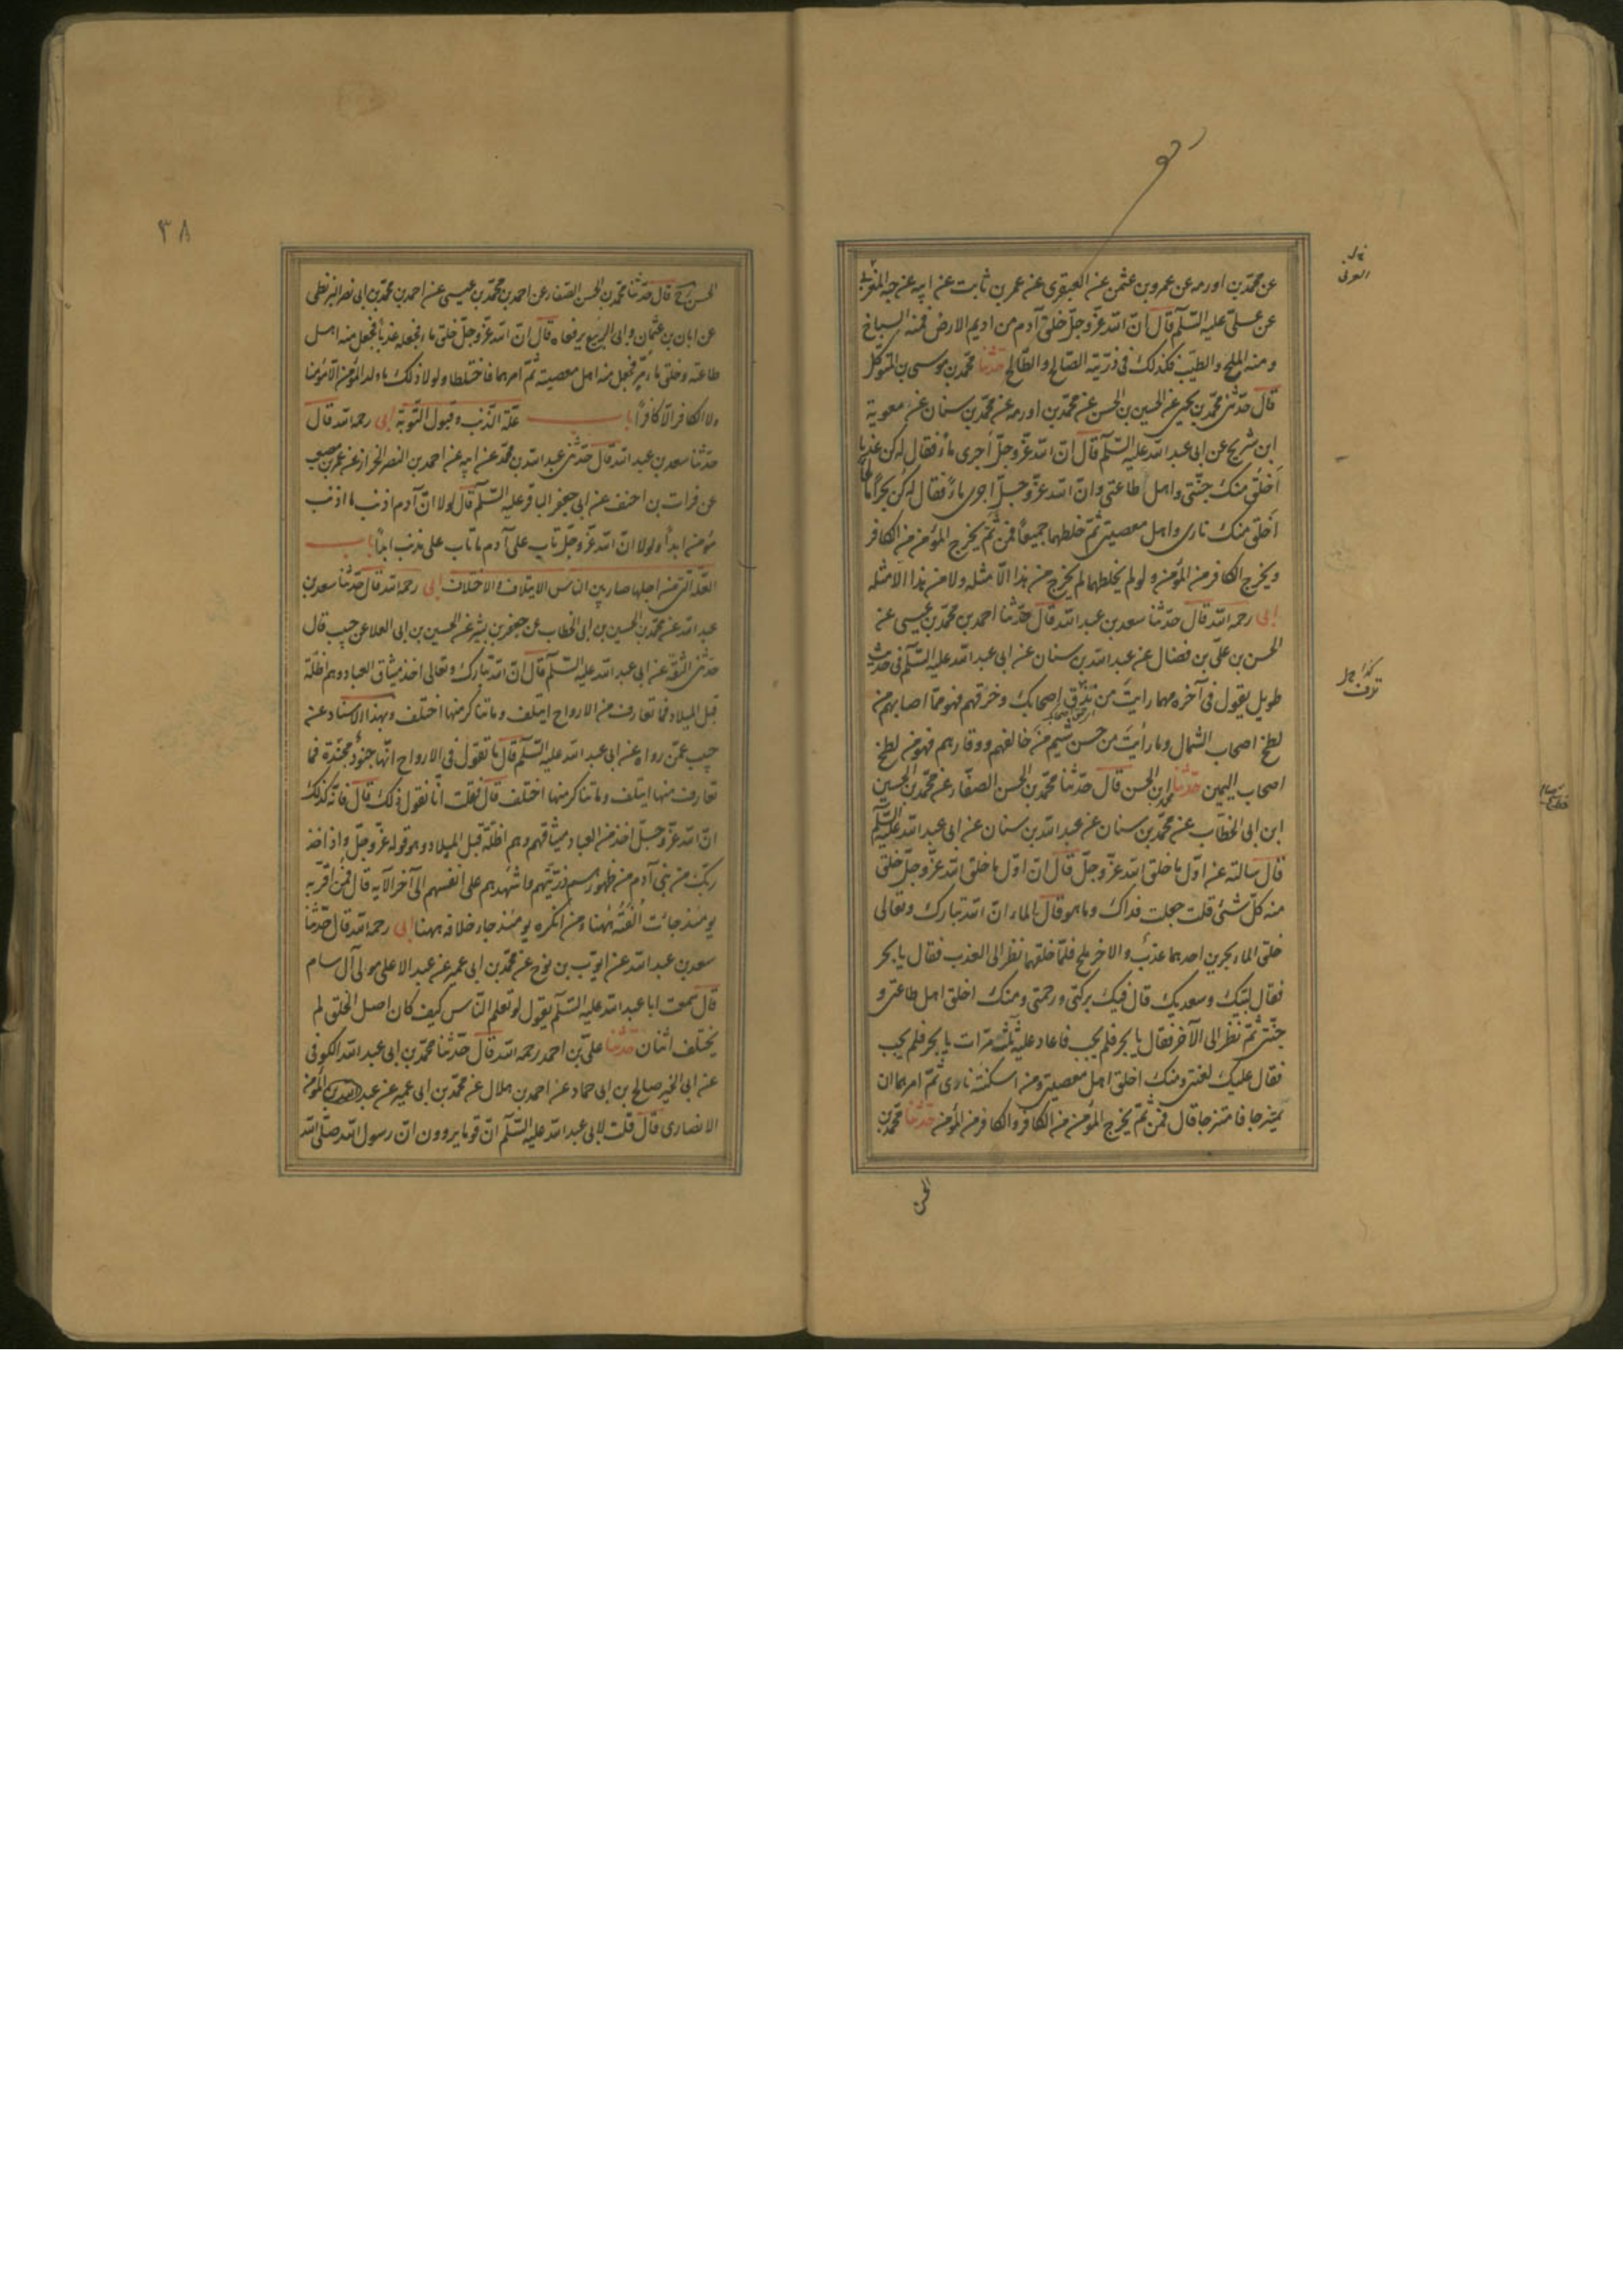 عن محمّد بن اورمه عن عمرو بن عثمن عن العبقرى عن عمر بن ثابت عن ابيه عن حبه العرنى
عن علىّ عليه السّلم قال انّ اللّه عزّ وجلّ خلق آدم من اديم الارض فمنه السباخ
ومنه الملح والطيّب فكذلك فى ذرّيّته الصّالح والطّالح حدثنا محمّد بن موسى بن المتوكّل
قال حدّثنى محمّد بن يحيى عن الحسين بن الحسن عن محمّد بن اورمه عن محمّد بن سنان عن معوية
ابن شريح عن ابى عبد اللّه عليه السّلم قال انّ اللّه عزّ وجلّ أجرى ماءً فقال له كن عذبا
أخلق منك جنّتى واهل طاعتى وانّ اللّه عزّ وجلّ اجرى ماءً فقال له كن بحراً مالحا
أخلق منك نارى واهل معصيتى ثمّ خلطهما جميعاً فمن ثمّ يخرج المؤمن من الكافر
ويخرج الكافر من المؤمن ولو لم يخلطهما لم يخرج من هذا الّا مثله ولا من هذا الا مثله
ابى رحمه اللّه قال حدّثنا سعد بن عبد اللّه قال حدّثنا احمد بن محمّد بن عيسى عن
الحسن بن علىّ بن فضال عن عبد اللّه بن سنان عن ابى عبد اللّه عليه السّلم فى حديث
طويل يقول فى آخره مهما رايت من نزق اصحابك وخرقهم فهو ممّا اصابهم من
لطخ اصحاب الشمال وما رأيت من حسن شيم من خالفهم ووقارهم فهو من لطخ
اصحاب اليمين حدّثنا محمد ابن الحسن قال حدّثنا محمّد بن الحسن الصفّار عن محمّد بن الحسين
ابن ابى الخطاب عن محمّد بن سنان عن عبد اللّه بن سنان عن ابى عبد اللّه عليه السّلم
قال سالته عن اوّل ما خلق اللّه عزّ وجلّ قال ان اوّل ما خلق اللّه عزّ وجلّ خلق
منه كلّ شئ قلت جعلت فداك وما هو قال الماء انّ اللّه تبارك وتعالى
خلق الماء بحرين احدهما عذب والاخر ملح فلمّا خلقهما نظر الى العذب فقال يا بحر
فقال لبّيك وسعديك قال فيك بركتى ورحمتى ومنك اخلق اهل طاعتى و
جنّتى ثمّ نظر الى الآخر فقال يا بحر فلم يجب فاعاد عليه ثلث مرّات يا بحر فلم يجب
فقال عليك لعنتى ومنك اخلق اهل معصيتى ومن اسكنته نارى ثمّ امرهما ان
يمتزجا فامتزجا قال فمن ثمّ يخرج المؤمن من الكافر والكافر من المؤمن حدّثنا محمّد بن
الحسن
٣٨
الحسن قال حدّثنا محمّد بن الحسن الصفّار عن احمد بن محمّد بن عيسى عن احمد بن محمّد بن ابى نصر البزنطى
عن ابان بن عثمان وابى الربيع يرفعاه قال انّ اللّه عزّ وجلّ خلق ماء فجعله عذباً فجعل منه اهل
طاعته وخلق ماء مرّ فجعل منه اهل معصيته ثمّ امرهما فاختلطا ولو لا ذلك ما ولد المؤمن الّا مؤمنا
ولا الكافر الّا كافراً باب علّة الذّنب وقبول التّوبة ابى رحمه اللّه قال
حدّثنا سعد بن عبد اللّه قال حدّثنى عبد اللّه بن محمّد عن ابيه عن احمد بن النصر الخراز عن عمر بن مصعب
عن فرات بن احنف عن ابى جعفر الباقر عليه السّلم قال لو لا انّ آدم اذنب ما اذنب
مؤمن ابداً ولو لا انّ اللّه عزّ وجلّ تاب على آدم ما تاب على مذنب ابداً باب
العلّة الّتى من اجلها صار بين النّاس الايتلاف والاختلاف ابى رحمه اللّه قال حدّثنا سعد بن
عبد اللّه عن محمّد بن الحسين بن ابى الخطاب عن جعفر بن بشير عن الحسين بن ابى العلا عن حبيب قال
حدّثنى الثقة عن ابى عبد اللّه عليه السّلم قال انّ اللّه تبارك وتعالى اخذ ميثاق العباد وهم اظلّة
قبل الميلاد فما تعارف من الارواح ايتلف وما تناكر منها اختلف وبهذا الاسناد عن
حبيب عمّن رواه عن ابى عبد اللّه عليه السّلم قال ما تقول فى الارواح انّها جنود مجنّدة فما
تعارف منها ايتلف وما تناكر منها اختلف قال فقلت انّا نقول ذلك قال فانّه كذلك
انّ اللّه عزّ وجلّ اخذ من العباد ميثاقهم وهم اظلّة قبل الميلاد وهو قوله عزّ وجلّ واذ اخذ
ربّك من بنى آدم من ظهورهم ذرّيّتهم واشهدهم على انفسهم الى آخر الآية قال فمن اقرّ به
يومئذ جائت اُلفته ههنا ومن انكره يومئذ جاء خلافه ههنا ابى رحمه اللّه قال حدّثنا
سعد بن عبد اللّه عن ايّوب بن نوح عن محمّد بن ابى عمير عن عبد الاعلى مولى آل سام
قال سمعت ابا عبد اللّه عليه السّلم يقول لو تعلم النّاس كيف كان اصل الخلق لم
يختلف اثنان حدّثنا علىّ بن احمد رحمه اللّه قال حدّثنا محمّد بن ابى عبد اللّه الكوفى
عن ابى الخير صالح بن ابى حماد عن احمد بن هلال عن محمّد بن ابى عمير عن عبد اللّه بن المؤمن
الانصارى قال قلت لابى عبد اللّه عليه السّلم انّ قوما يروون انّ رسول اللّه صلّى اللّه